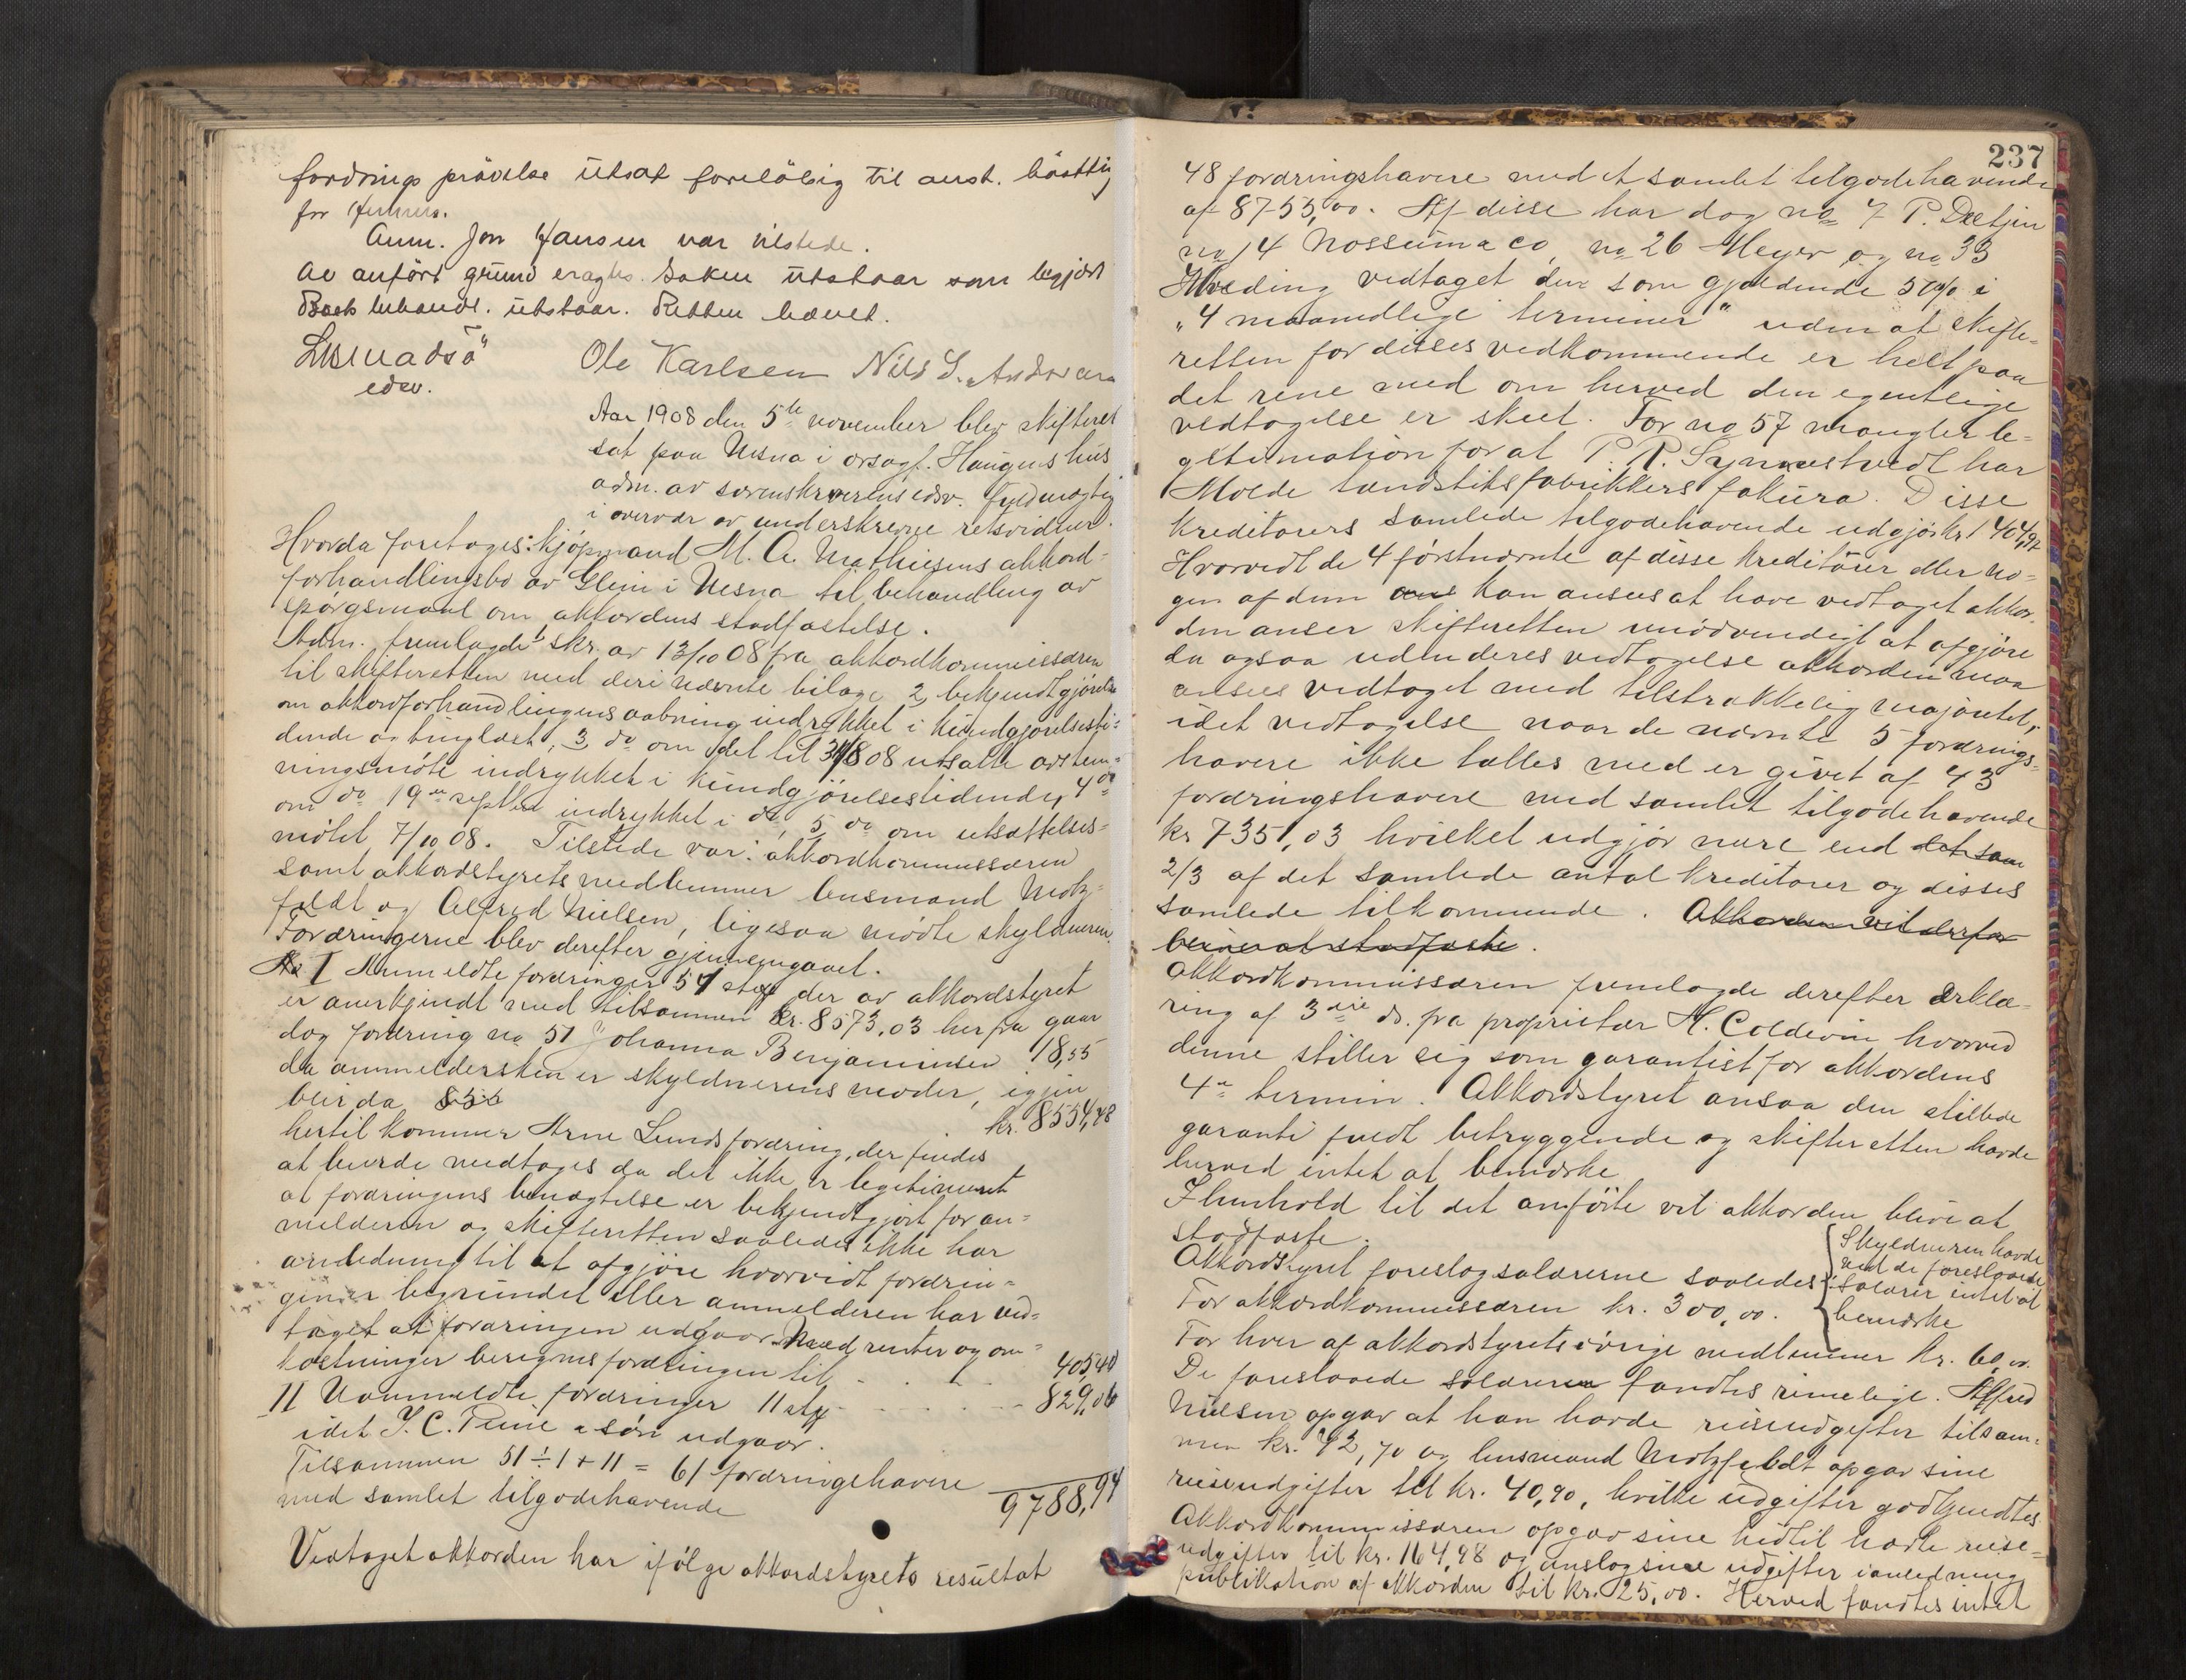 fordrings prövelse utsat foreløbig til anst.
for
Anm. Jon Hansen var tilstede.
Av anført grund eragtes saken utstaar som begjært
Boets behandl. utstaar. Retten hævet.
Ole Karlsen Nils S. Andersen
edsv.
Aar 1908 den 5te november blev skifteret
sat paa Nesna i orsagf. Haugens hus
adm. av sorenskriverens edsv. fuldmægtig
i overvær av underskrevne retsvidner.
Hvorda foretoges: kjøpmand M. A. Mathiesens akkord-
forhandlingsbo av Glein i Nesna til behandling av
spørgsmaal om akkordens stadfæstelse.
Adm. fremlagde 1 skr. av 13/10 08 fra akkordkommissæren
til skifteretten med deri nævnte bilage, 2, bekjendtgjørelse
om akkordforhandlingens aabning indrykket i Kundgjørelsesti-
dende og tinglæst, 3, do om det til 31/8 08 utsatte avstem-
ningsmøte indrykket i Kundgjørelsestidende, 4 do
om do 19de septbr indrykket i do, 5 do om utsættelses-
mötet 7/10 08. Tilstede var: akkordkommissæren
samt akkordstyrets medlemmer lensmand Motz-
feldt og Alfred Nielsen, ligesaa mødte skyldneren.
Fordringerne blev derefter gjennemgaaet.
I Anmeldte fordringer 51 stk der av akkordstyret
er anerkjendt med tilsammen kr. 8573,03 herfra gaar
dog fordring no 51 Johanna Benjaminsen 18,55
da anmeldersken er skyldnerens moder, igjen
blir da kr. 8554,48
hertil kommer Arne Lunds fordring, der findes
at burde medtages da det ikke er legitimeret
at fordringens benægtelse er bekjendtgjort for an-
melderen og skifteretten saaledes ikke har
anledning til at afgjøre hvorvidt fordrin-
gen er begrundet eller anmelderen har ved-
taget at fordringen udgaar. Med renter og om-
kostninger beregnes fordringen til 405,40
II Uanmeldte fordringer 11 stk 829,06
idet J. C. Piene & søn udgaar.
Tilsammen 51 ÷ 1 + 11 = 61 fordringshavere
med samlet tilgodehavende 9788,94
Vedtaget akkorden har ifølge akkordstyrets resultat
237
48 fordringshavere med et samlet tilgodehavende
af 8755,00. Af disse har dog no 7 P. Deetjen
no 14 Nossum & Co, no 26 Meyer og no 33
Hveding vedtaget den som gjældende 50% i
"4 maanedlige terminer" uden at skifte-
retten for disses vedkommende er helt paa
det rene med om herved den egentlige
vedtagelse er skeet. For no 57 mangler le-
gitimation for at P. P. Synnestvedt har
Molde tændstiksfabrikkers fakura. Disse
kreditorers samlede tilgodehavende udgjør kr 1404,97
Hvorvidt de 4 førstnævnte af disse kreditorer eller no-
gen af dem kan ansees at have vedtaget akkor-
den anser skifteretten unødvendigt at afgjøre
da ogsaa uden deres vedtagelse akkorden maa
ansees vedtaget med tilstrækkelig majoritet,
idet vedtagelse naar de nævnte 5 fordrings-
havere ikke tælles med er givet af 43
fordringshavere med samlet tilgodehavende
kr 7351,03 hvilket udgjør mere end det sam
2/3 af det samlede antal kreditorer og disses
samlede tilkommende. Akkorden vil derfor
blive at stadfæste.
Akkordkommissæren fremlagde derefter erklæ-
ring af 3die ds. fra proprietær H. Coldevin hvorved
denne stiller sig som garantist for akkordens
4de termin. Akkordstyret ansaa den stillede
garanti fuldt betryggende og skifteretten havde
herved intet at bemærke.
I henhold til det anførte vil akkorden blive at
stadfæste.
Akkordstyret foreslog salærerne saaledes:
For akkordkommissæren kr. 300,00.
Skyldneren havde
ved de foreslaaede
salærer intet at
bemærke
For hver af akkordstyrets øvrige medlemmer kr. 60,00.
De foreslaaede salærer fandtes rimelige. Alfred
Nielsen opgav at han havde reiseudgifter tilsam-
men kr. 42,70 og lensmand Motzfeldt opgav sine
reiseudgifter til kr. 40,90, hvilke udgifter godkjendtes.
Akkordkommissæren opgav sine hidtil havte reise-
udgifter til kr. 164,98 og anslog sine udgifter i anledning
publikation af akkorden til kr. 25,00. Herved fandtes intet